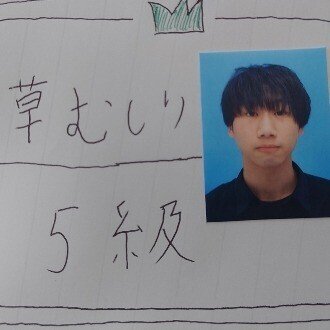 草むしり
5級